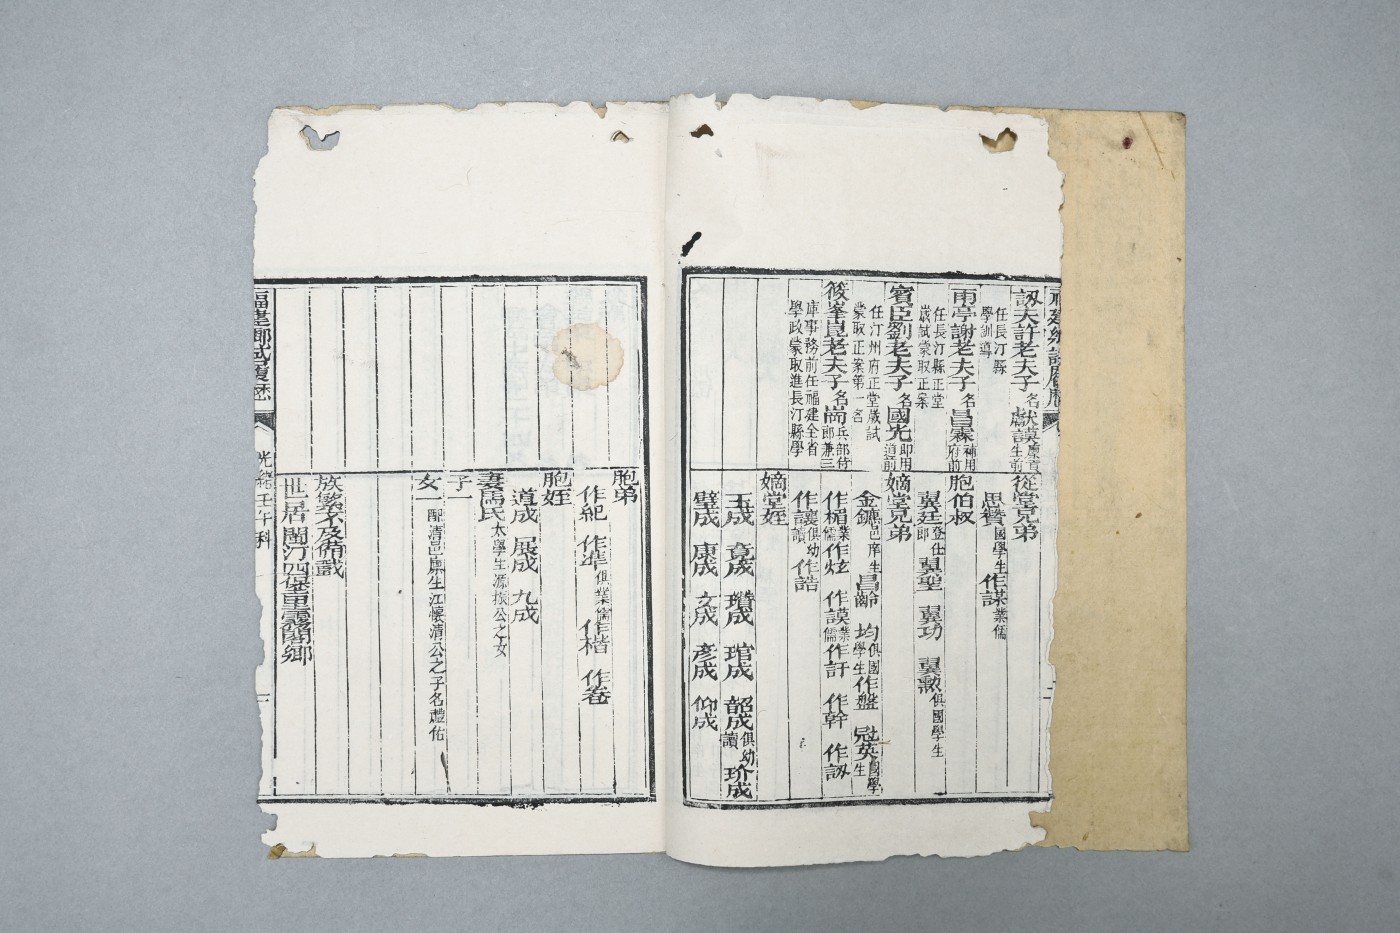 訒夫許老夫子名獻謨廩貢生前
任長汀縣
學訓導
雨亭謝老夫子名昌霖補用府前
任長汀縣正堂
歲試蒙取正案
賓臣劉老夫子名國光即用道前
任汀州府正堂歲試
蒙取正案第一名
筱峯崑老夫子名岡兵部侍郎兼三
庫事務前任福建全省
學政蒙取進長汀縣學
從堂兄弟
思贊國學生 作謀業儒
胞伯叔
翼廷登仕郎 翼聖 翼功 翼勲俱國學生
嫡堂兄弟
金鑣邑庠生 昌齡 均俱國學生 作盤 冠英國學生
作楣業儒 作炫 作謨業儒 作訏 作幹 作訒
作讓俱幼讀 作誥
嫡堂姪
玉成 竟成 瓚成 琯成 韶成俱幼讀 玠成
璧成 康成 文成 彥成 仰成
胞弟
作紀 作凖俱業儒 作楷 作卷
胞姪
道成 展成 九成
妻馬氏太學生源掞公之女
子一
女一配清邑廪生江懷清公之子名禮佑
族繁不及備載
世居閩汀四堡里霧閣鄉
福建鄉試履歷 光緒壬午科